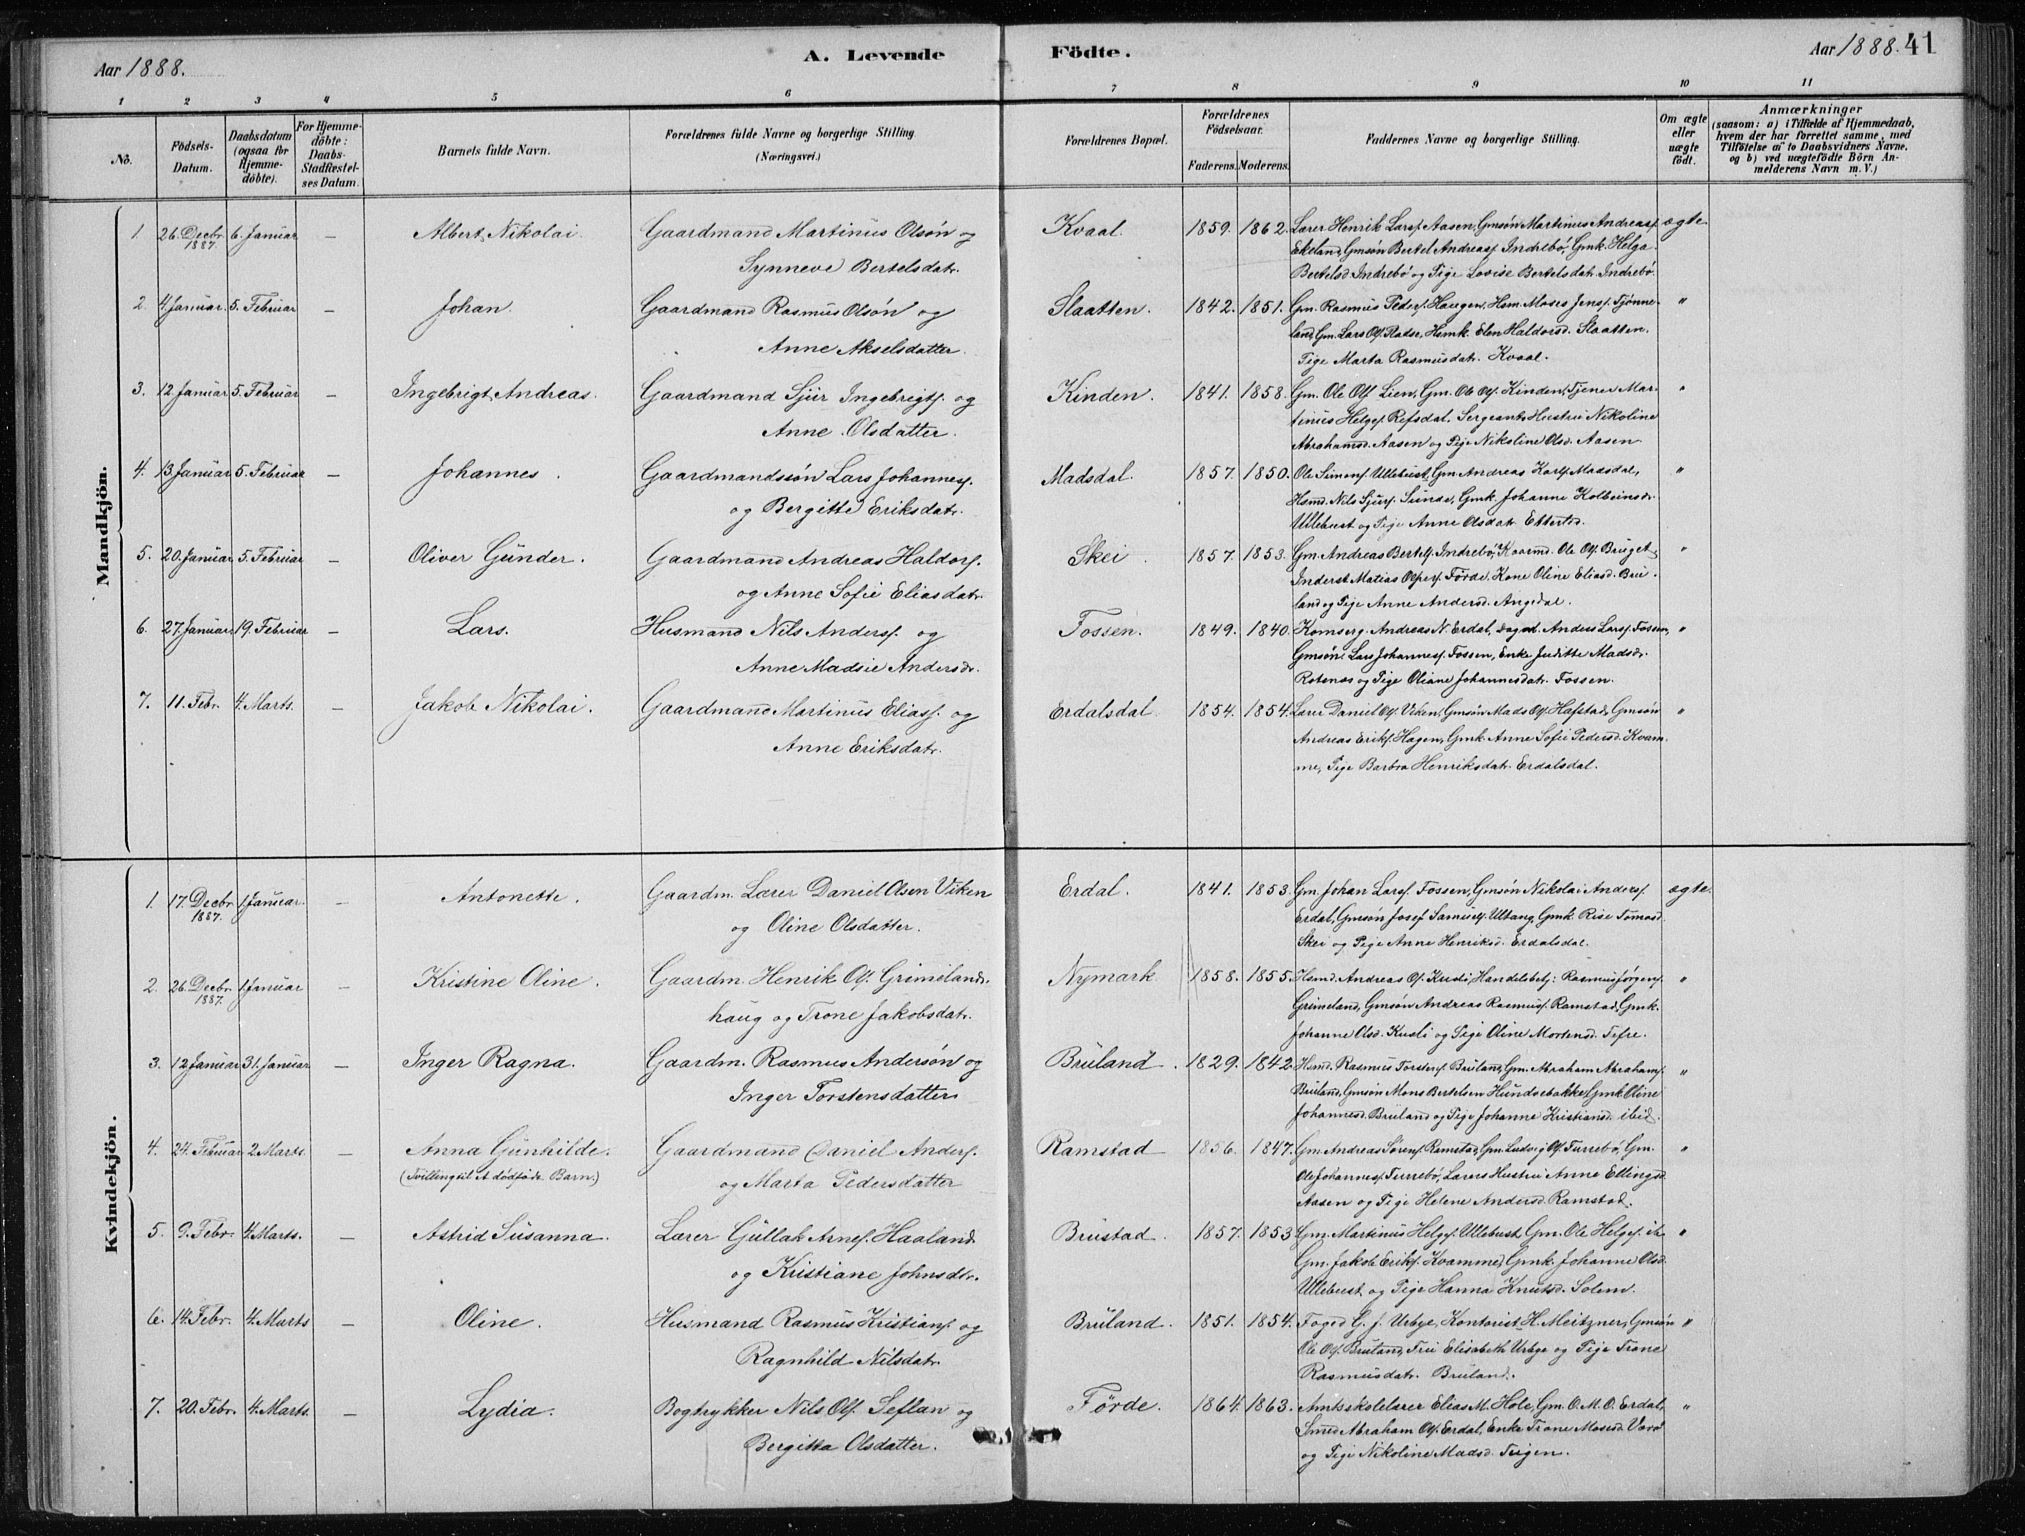 Aar 1888. A. Levende Födte. Aar 1888. 41
1 2 3 4 5 6 7 8 9 10 11
No. Födsels-Datum. Daabsdatum (ogsaa for Hjemme-döbte). For Hjemme-döbte: Daabs-Stadfæstel-ses Datum. Barnets fulde Navn. Forældrenes fulde Navne og borgerlige Stilling (Næringsvei.) Forældrenes Bopæl. Forældrenes Födselsaar. Faderens. Moderens. Faddernes Navne og borgerlige Stilling. Om ægte eller uægte födt. Anmærkninger (saasom: a) i Tilfælde af Hjemmedaab, hvem der har forrettet samme, med Tilföielse af to Daabsvidners Navne, og b) ved uægtefödte Börn An-melderens Navn m. V.)
Mandkjön.
1. 26. Decbr. 1887. 6. Januar — Albert Nikolai. Gaardmand Martinus Olsøn og Kvaal. 1859. 1862. Lærer Henrik Larsf. Aasen, Gmsøn Martinus Andreasf. ægte
Synneve Bertelsdatr. Ekeland, Gmsøn Bertel Andreasf. Indrebø, Gmk. Helga
Bertelsd. Indrebø og Pige Lovise Bertelsdatr. Indrebø.
2. 4. Januar. 5. Februar — Johan. Gaardmand Rasmus Olsøn og Slaatten. 1842. 1851. Gm. Rasmus Pedersf. Haugen, Hsm. Moses Jensf. Tjønne- "
Anne Akselsdatter. land, Gm. Lars Olsf. Fladse, Hsmk. Elen Haldorsd. Slaatten.
Pige Marta Rasmusdatr. Kvaal.
3. 12. Januar 5. Februar — Ingebrigt Andreas. Gaardmand Sjur Ingebrigtsf. og Kinden. 1841. 1858. Gm. Ole Olsf. Lien, Gm. Ole Olsf. Kinden, Tjener Mar- "
Anne Olsdatter. tinus Helgesf. Refsdal. Sergeants Hustru Nikoline
Abrahamsd. Aasen og Pige Nikoline Olsd. Aasen
4. 13. Januar 5. Februar — Johannes. Gaardmandssøn Lars Johannesf. Madsdal. 1857. 1850. Ole Simonsf. Ullebust, Gm. Andreas Karlsf. Madsdal, "
og Bergitte Eriksdatr. Hsmd. Nils Sjursf. Sunde, Gmk. Johanne Kolbeinsdr.
Ullebust og Pige Anne Olsdatr.
5. 20. Januar 5. Februar — Oliver Gunder. Gaardmand Andreas Haldorsf. Skei. 1857. 1853. Gm. Andreas Bertelsf. Indrebø, Kaarmd. Ole Olsf. Bruget, "
og Anne Sofie Eliasdatr. Inderst Matias Førde, Kone Oline Eliasd. Bru-
land og Pige Anne Andersd. Angedal.
6. 27. Januar 19. Februar — Lars. Husmand Nils Andersf. og Fossen. 1849. 1840. Andreas N. Erdal, Anders Larsf. Fossen, "
Anne Madsie Andersdr. Gmsøn Lars Johannesf. Fossen, Enke Juditte Madsdr.
Rotenæs og Pige Oliane Johannesdatr. Fossen.
7. 11. Febr. 4. Marts. — Jakob Nikolai. Gaardmand Martinus Eliasf. og Erdalsdal. 1854. 1854. Lærer Daniel Olsf. Viken, Gmsøn Mads Olsf. Hafstad, Gmsøn "
Anne Eriksdatr. Andreas Eriksf. Hagen, Gmk. Anne Sofie Pedersd. Kvam-
me, Pige Barbra Henriksdatr. Erdalsdal.
Kvindekjön.
1. 17. Decbr. 1887. 1. Januar. — Antonette. Gaardm. Lærer Daniel Olsen Viken Erdal. 1841. 1853. Gm. Johan Larsf. Fossen, Gmsøn Nikolai Andersf. ægte.
og Oline Olsdatter. Erdal, Gmsøn Josef Samuelsf. Ultang, Gmk. Rise Tomasd.
Skei og Pige Anne Henriksd. Erdalsdal.
2. 26. Decbr. 1887. 1. Januar — Kristine Oline. Gaardm. Henrik Olsf. Grimelands- Nymark 1858. 1855. Hsmd. Andreas Olsf. Kusli, Handelsbetj: Rasmus Jørgensf. "
haug og Trone Jakobsdatr. Grimeland, Gmsøn Andreas Rasmusf. Ramstad, Gmk.
Johanne Olsd. Kusli og Pige Oline Mortensd. Tefre.
3. 12. Januar 31. Januar — Inger Ragna. Gaardm. Rasmus Andersøn og Bruland. 1829. 1842. Hsmd. Rasmus Torstensf. Bruland, Gm. Abraham Abrahamsf. "
Inger Torstensdatter Bruland, Gmsøn Mons Bertelsen Hundvebakke, Gmk. Oline
Johannesd. Bruland og Pige Johanne Kristiansd. ibid.
4. 24. Febuar 2. Marts. — Anna Gunhilde. Gaardmand Daniel Andersf. Ramstad 1856. 1847. Gm. Andreas Sørensf. Ramstad, Gm. Ludvig Olsf. Furrebø, Gm. "
(Tvilling til et dødfødt Barn.) og Marta Pedersdatter Ole Johannesf. Furrebø, Lærers Hustru Anne Ellingsd.
Aasen og Pige Helene Andersd. Ramstad.
5. 9. Febr. 4. Marts. — Astrid Susanna. Lærer Gullak Arnesf. Haaland Brustad. 1857. 1853 Gm. Martinus Helgesf. Ullebust, Gm. Ole Helgesf. ib "
og Kristiane Johnsdr. Gm. Jakob Eriksf. Kvamme, Gmk. Johanne Olsd.
Ullebust og Pige Hanna Knutsd. Solem.
6. 14. Febr. 4. Marts — Oline. Husmand Rasmus Kristiansf. og Bruland. 1851. 1854. Foged G. J. Urbye, Kontorist H. Meitzner, Gmsøn "
Ragnhild Nilsdatr. Ole Olsf. Bruland, Fru Elisabeth Urbye og Pige Trone
Rasmusdatr. Bruland.
7. 20. Febr. 4. Marts. — Lydia. Bogtrykker Nils Olsf. Seflan og Førde. 1864. 1863. Amtsskolelærer Elias M. Hole, Gm. O. M. O. Erdal, "
Bergitta Olsdatter. Smed Abraham Olsf. Erdal, Enke Trone Mosesd.
og Pige Nikoline Madsd. Teigen.